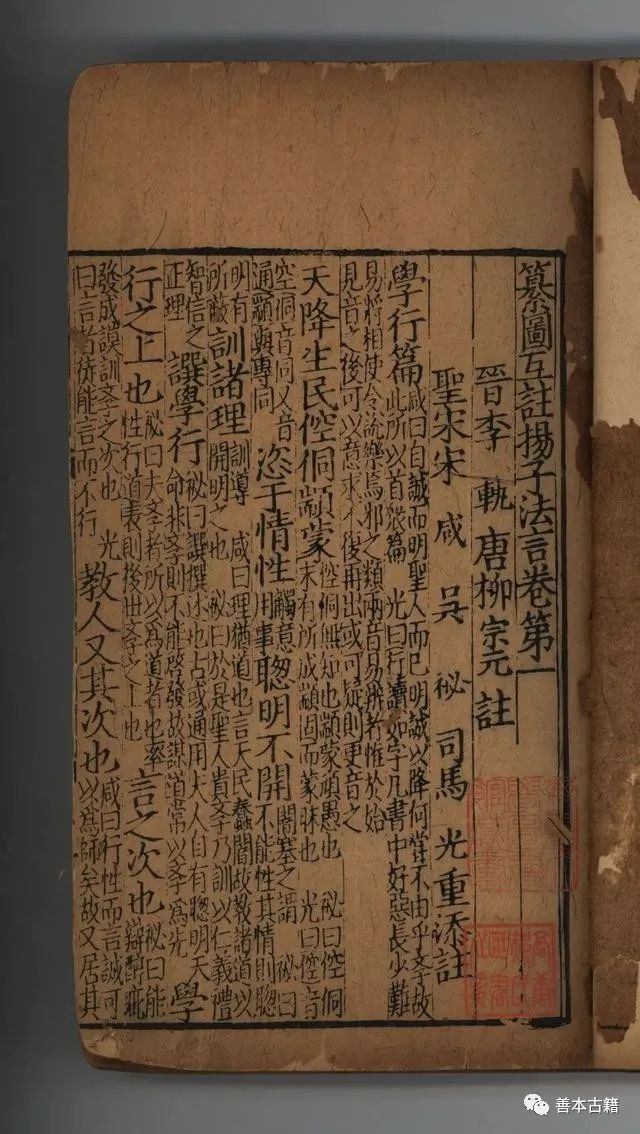 纂圖互註揚子法言卷第一
晉李 軌 唐柳宗元 註
聖宋宋 咸 吳 祕 司馬 光重添註
學行篇 咸曰自誠而明聖人而已明誠以降何嘗不由乎斈故
此所以首 篇 光曰行讀如字凡書中好惡長少難
易將相使令說樂焉邪之類兩音易辨者惟於始
見音之後可以意求不復再出或可疑則更音之
天降生民倥侗顓蒙 倥侗無知也顓蒙頑愚也 祕曰倥侗
未有所成顓固而蒙昧也 光曰倥音
空侗音同又音
通顓與專同 恣于情性 觸意
用事 聦明不開 闇塞之謂 祕曰
不能性其情則聦
明有
所蔽 訓諸理 訓導 咸曰理猶道也言天民蠢闇故教諸道以
開明之也 祕曰於是聖人貴斈乃訓以仁義禮
智信之
正理 譔學行 祕曰譔撰述也古或通用夫人自有聦明天
命非斈則不能啓發故謀道常以斈爲先 學
行之上也 祕曰夫斈者所以爲道者也率
性行道表則後世斈之上也 言之次也 祕曰能
辯醇疵
發成謨訓斈之次也 光
曰言者徒能言而不行 教人又其次也 咸曰行性而言誠可
以爲師矣故又居其
善本古籍